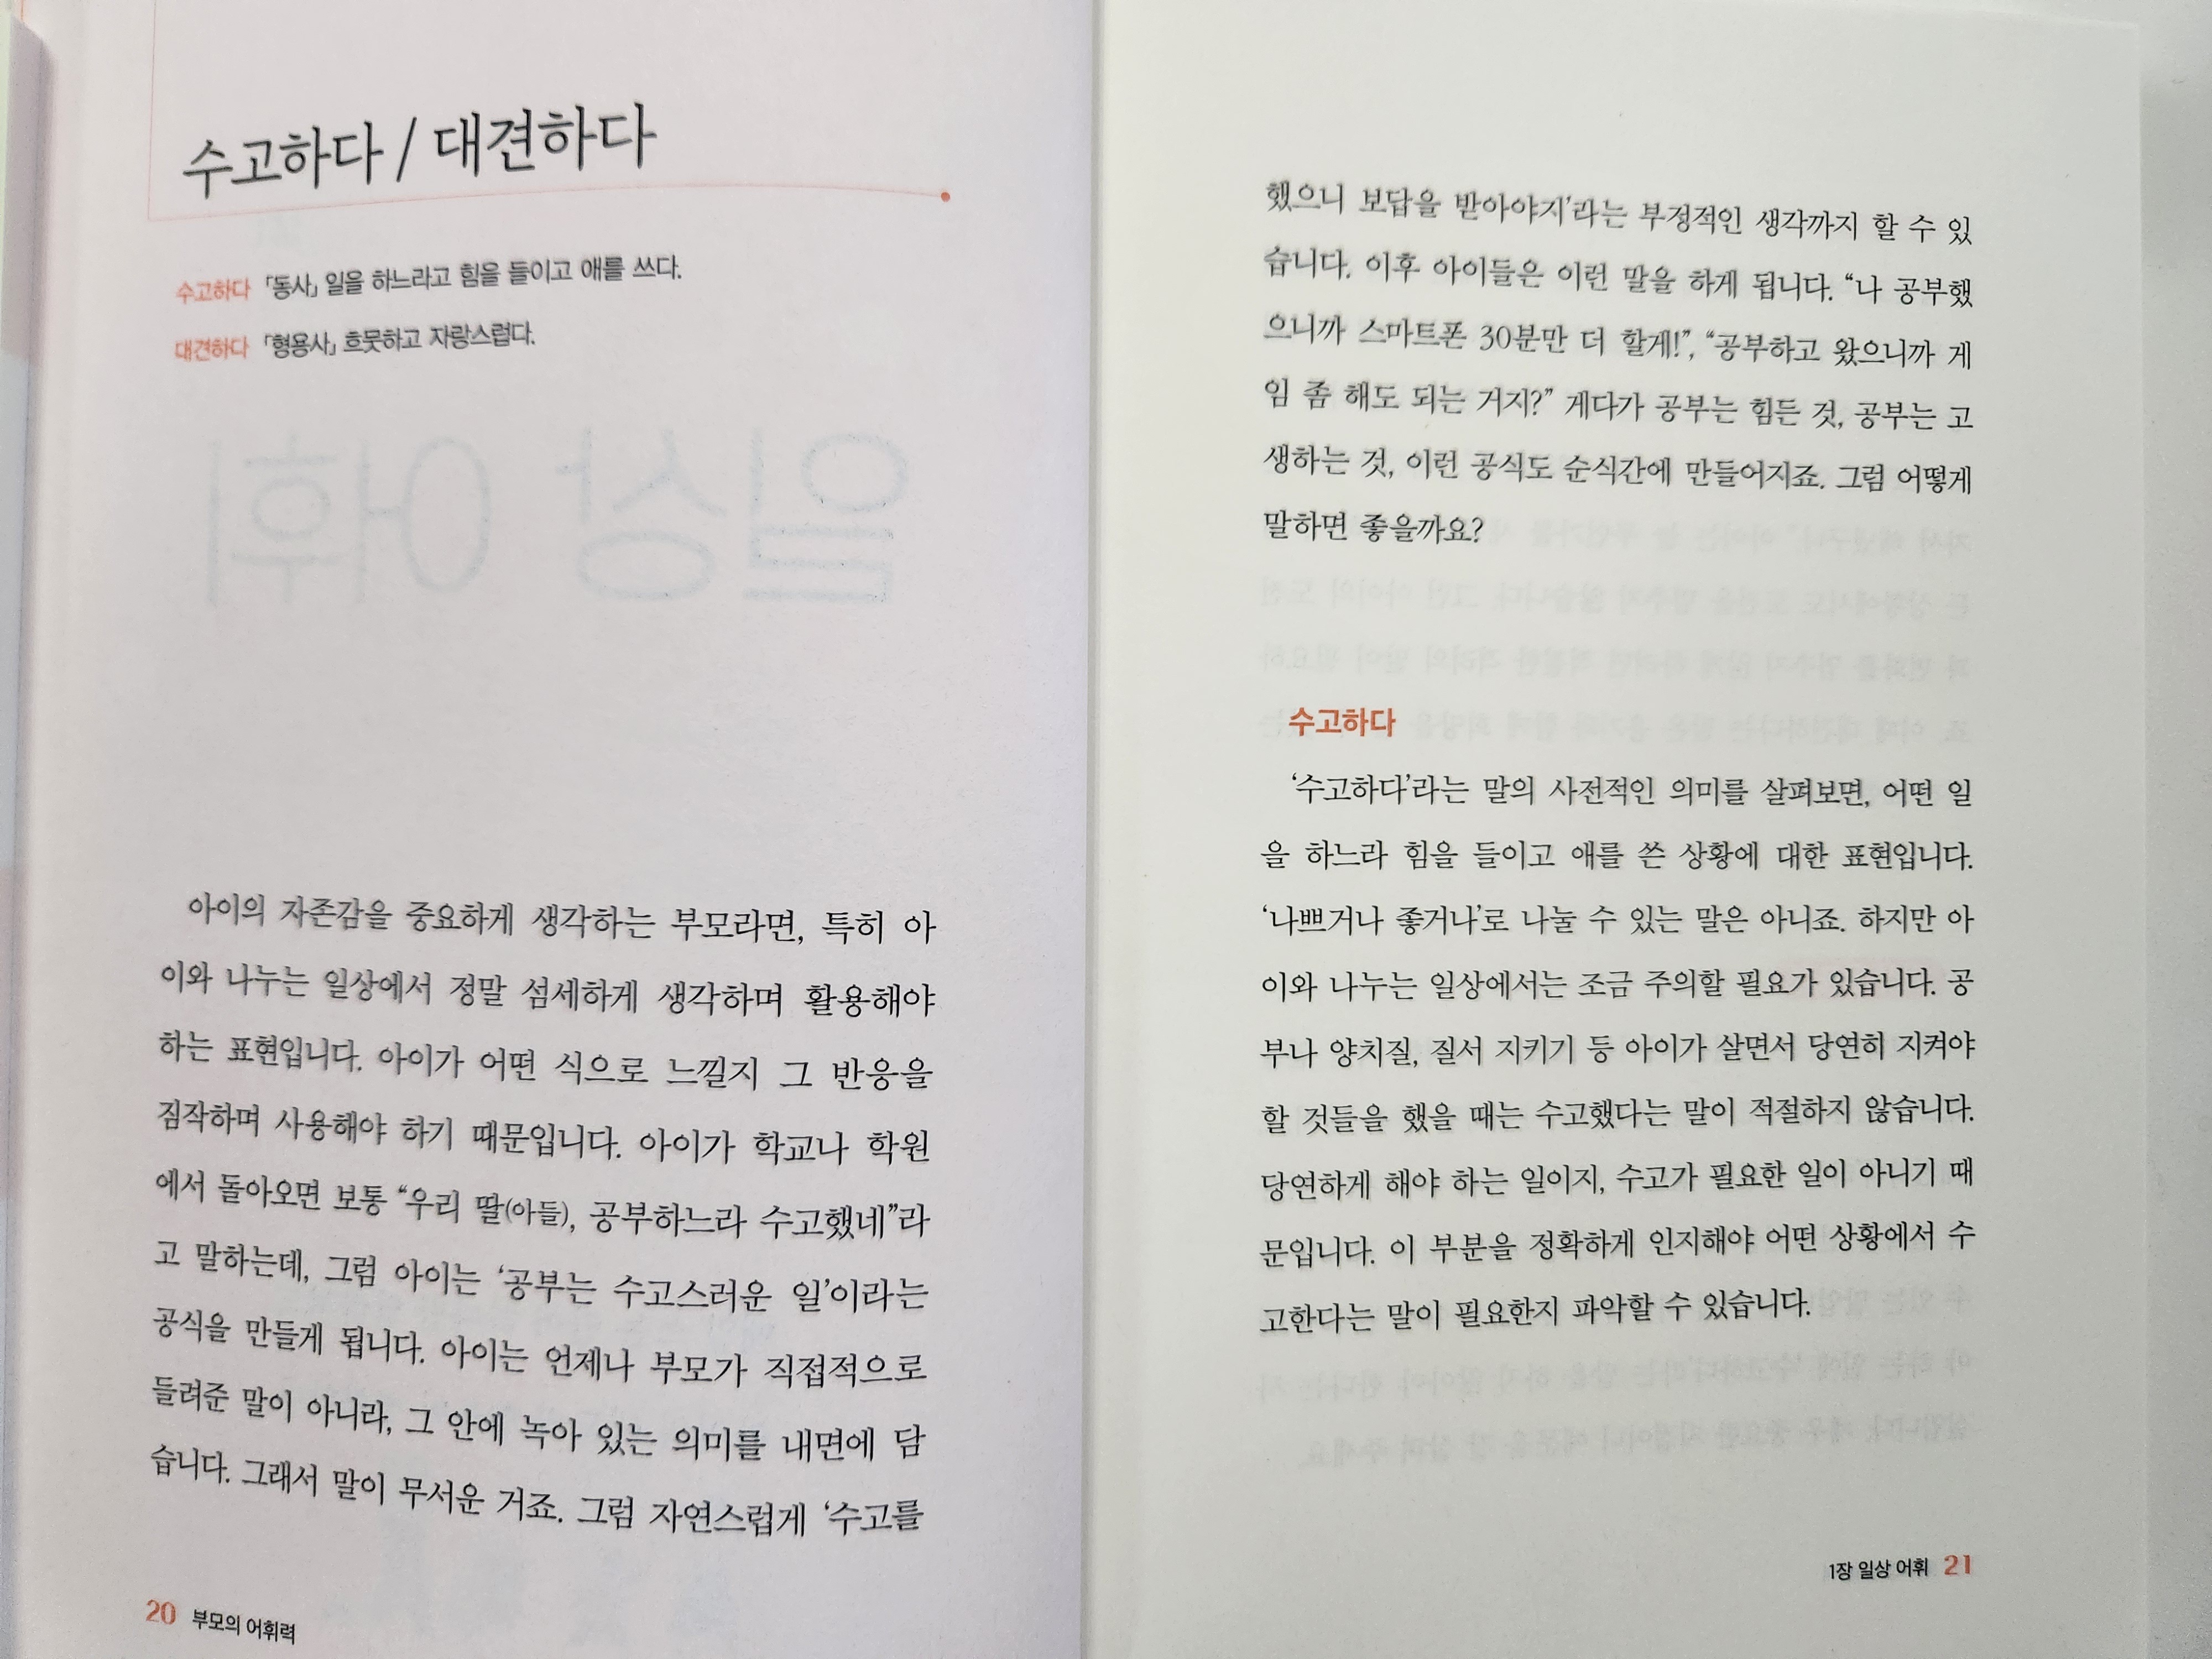 수고하다 / 대견하다
수고하다 「동사」 일을 하느라고 힘을 들이고 애를 쓰다.
대견하다 「형용사」 흐뭇하고 자랑스럽다.
아이의 자존감을 중요하게 생각하는 부모라면, 특히 아
이와 나누는 일상에서 정말 섬세하게 생각하며 활용해야
하는 표현입니다. 아이가 어떤 식으로 느낄지 그 반응을
짐작하며 사용해야 하기 때문입니다. 아이가 학교나 학원
에서 돌아오면 보통 “우리 딸(아들), 공부하느라 수고했네”라
고 말하는데, 그럼 아이는 ‘공부는 수고스러운 일’이라는
공식을 만들게 됩니다. 아이는 언제나 부모가 직접적으로
들려준 말이 아니라, 그 안에 녹아 있는 의미를 내면에 담
습니다. 그래서 말이 무서운 거죠. 그럼 자연스럽게 ‘수고를
20 부모의 어휘력
했으니 보답을 받아야지’라는 부정적인 생각까지 할 수 있
습니다. 이후 아이들은 이런 말을 하게 됩니다. “나 공부했
으니까 스마트폰 30분만 더 할게!”, “공부하고 왔으니까 게
임 좀 해도 되는 거지?” 게다가 공부는 힘든 것, 공부는 고
생하는 것, 이런 공식도 순식간에 만들어지죠. 그럼 어떻게
말하면 좋을까요?
수고하다
‘수고하다’라는 말의 사전적인 의미를 살펴보면, 어떤 일
을 하느라 힘을 들이고 애를 쓴 상황에 대한 표현입니다.
‘나쁘거나 좋거나’로 나눌 수 있는 말은 아니죠. 하지만 아
이와 나누는 일상에서는 조금 주의할 필요가 있습니다. 공
부나 양치질, 질서 지키기 등 아이가 살면서 당연히 지켜야
할 것들을 했을 때는 수고했다는 말이 적절하지 않습니다.
당연하게 해야 하는 일이지, 수고가 필요한 일이 아니기 때
문입니다. 이 부분을 정확하게 인지해야 어떤 상황에서 수
고한다는 말이 필요한지 파악할 수 있습니다.
1장 일상 어휘 21